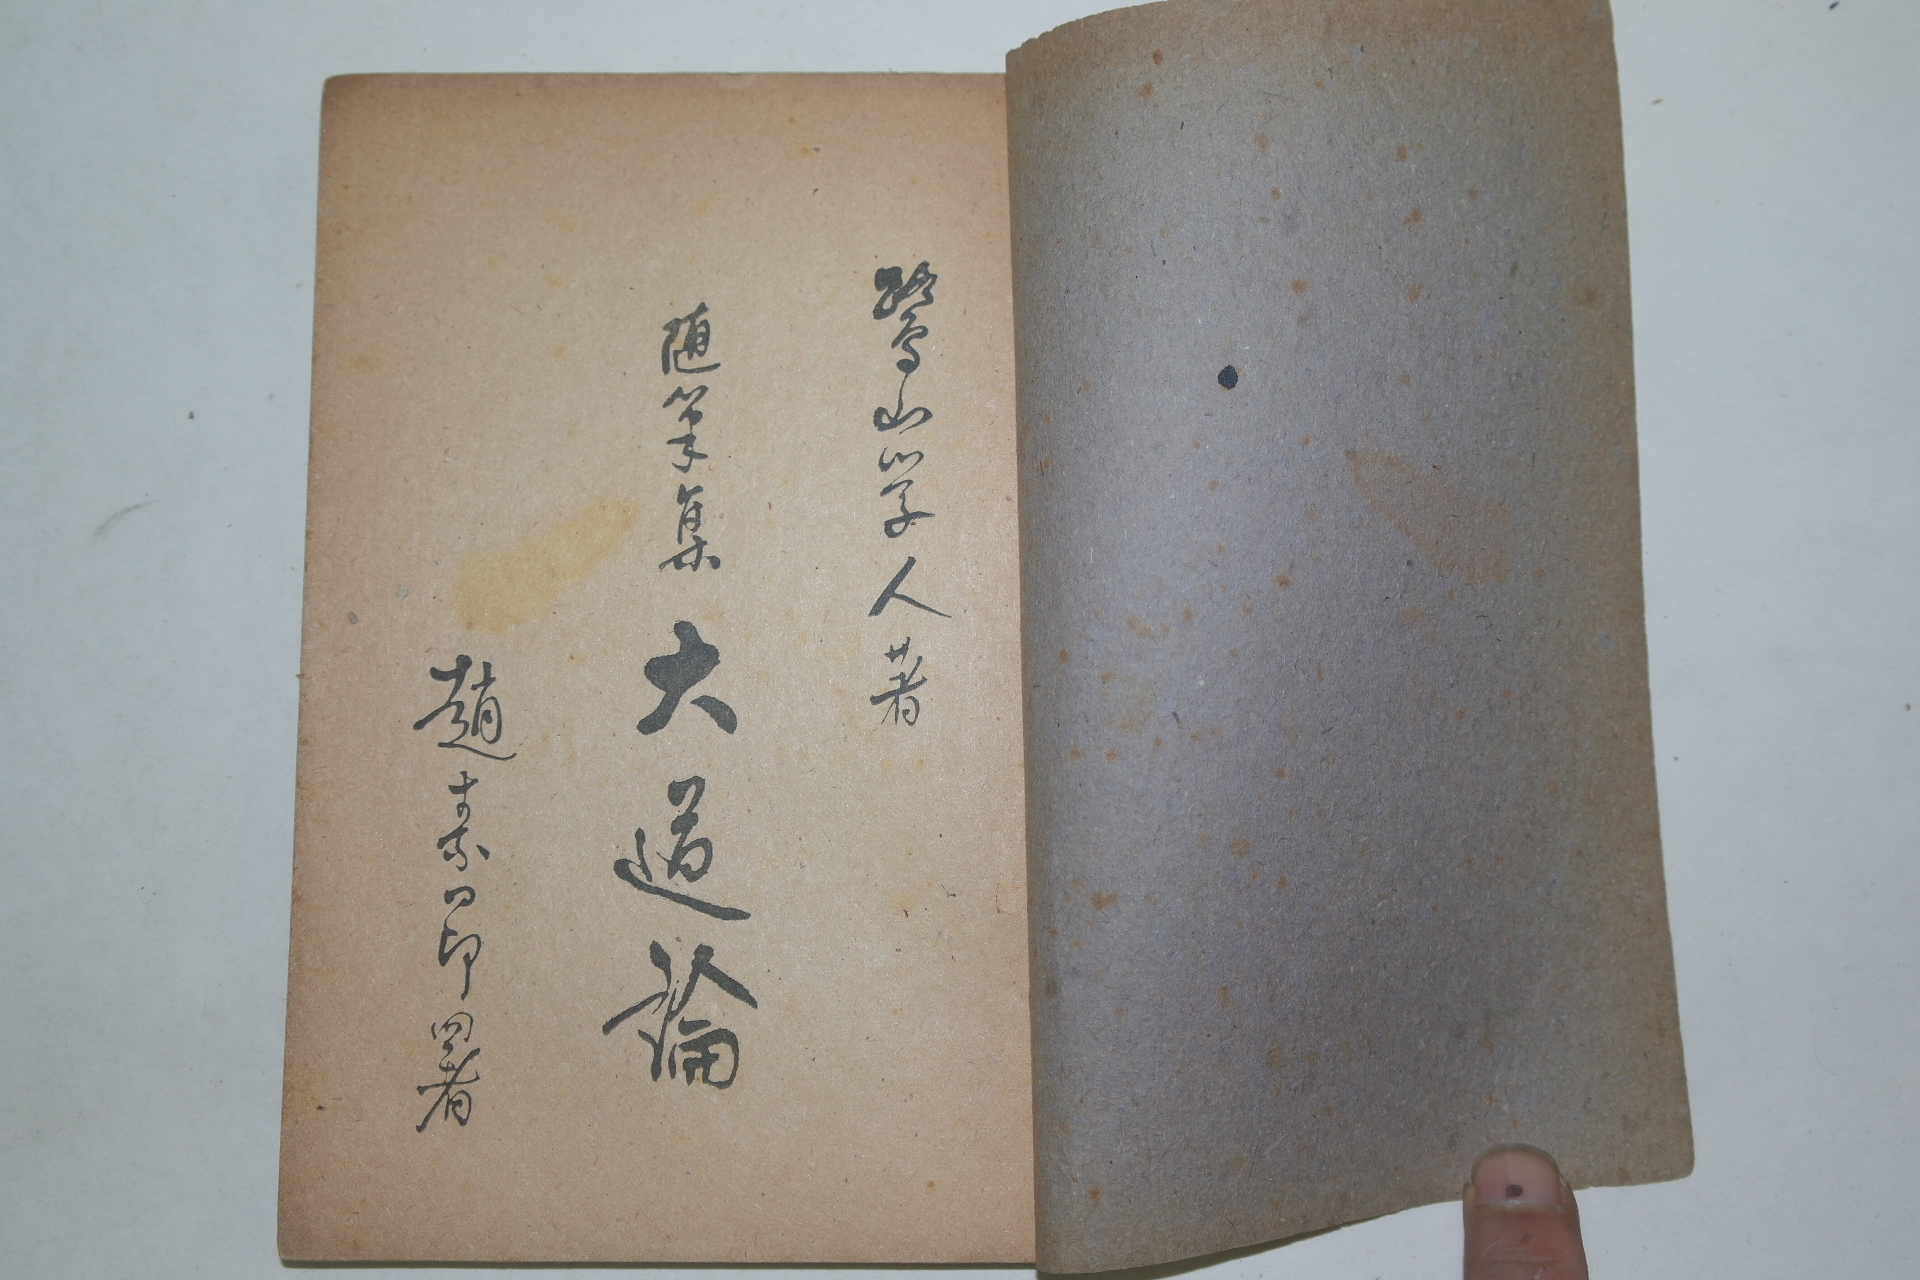 鷺山学人著
随筆集 大道論
趙素昂署